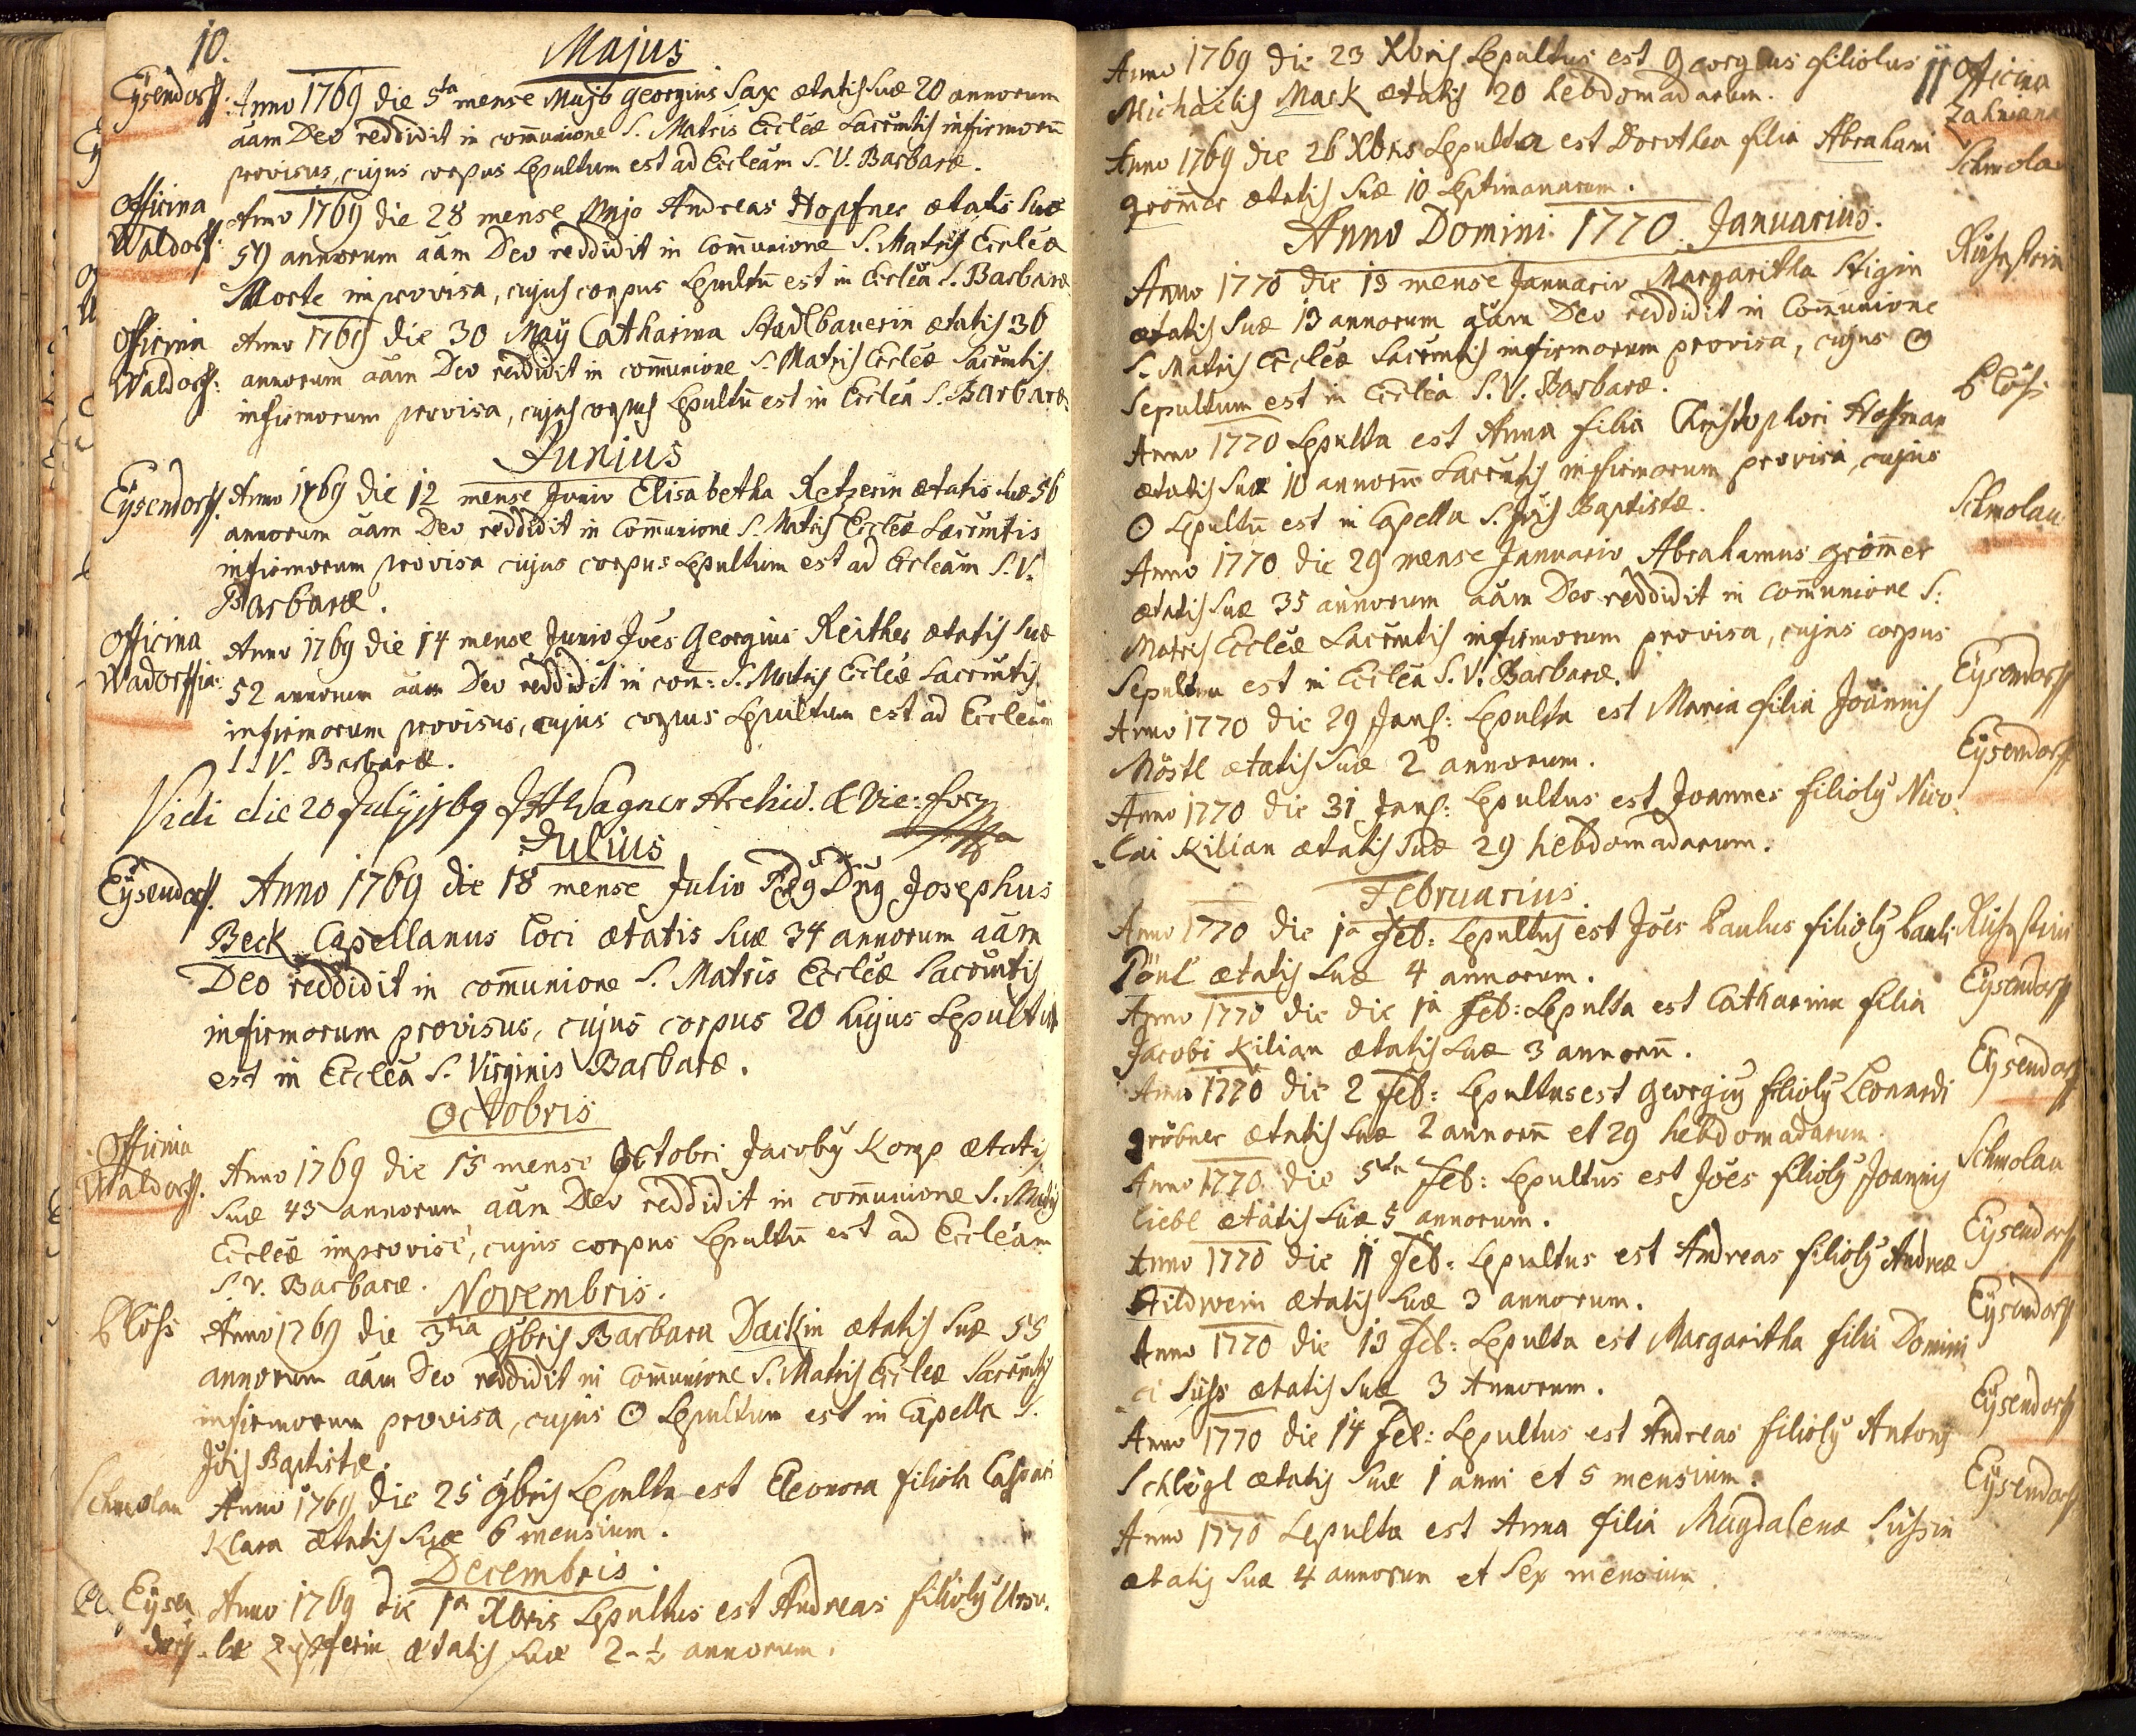 10.
Majus
Eÿsendorff. Anno 1769 die 5ta mense Majo Georgius Sax ætatis suæ 20 annorum
aãm Deo reddidit in com̃unione S. Matris Eccleæ Sacrmtis infirmorũ
provisus, cujus corpus sepultum est ad Eccleam S. V. Barbaræ.
Officina Anno 1769 die 28 mense Majo Andreas Hopfner ætatis suæ
Waldorff: 59 annorum aãm Deo reddidit in Com̃unione S. Matris Eccleæ
Morte improvisa, cujus corpus sepultũ est in Ecclea S. Barbaræ
Officina Anno 1769 die 30 Maÿ Catharina Stadlbauerin ætatis 36
Waldorff: annorum aãm Deo reddidit in com̃unione S. Matris Eccleæ Sacrmtis
infirmorum provisa, cujus corpus sepultũ est in Ecclea S. Barbaræ
Junius
Eÿsendorff. Anno 1769 die 12 mense Junio Elisabetha Retzerin ætatis suæ 56
annorum aãm Deo reddidit in Com̃unione S. Matris Eccleæ Sacrmtis
infirmorum provisa cujus corpus sepultum est ad Eccleam S. V.
Barbaræ.
Officina Anno 1769 die 14 mense Junio Joes Georgius Reither ætatis suæ
Wadorffia: 52 annorum aãm Deo reddidit in com̃: S. Matris Eccleæ Sacrmtis
infirmorum provisus, cujus corpus sepultum est ad Eccleam
S. V. Barbaræ.
Vidi die 20 Julÿ 1769 Wagner Archid. & Vic:
Julius
Eÿsendorff. Anno 1769 die 18 mense Julio Dñg Josephus
Beck Capellanus loci ætatis suæ 34 annorum aãm
Deo reddidit in com̃unione S. Matris Eccleæ Sacrmtis
infirmorum provisus, cujus corpus 20 hujus sepultum
est in Ecclea S. Virginis Barbaræ.
Octobris
Officina Anno 1769 die 15 mense Octobri Jacobg Korp ætatis
Waldorff. suæ 43 annorum aãm Deo reddidit in com̃unione S. Matris
Eccleæ improvise, cujus corpus sepultũ est ad Eccleam
S. V. Barbaræ.
Novembris.
Plöss Anno 1769 die 3tia 9bris Barbara Dackin ætatis suæ 55
annorum aãm Deo reddidit in Com̃unione S. Matris Eccleæ Sacrmtis
infirmorum provisa, cujus ⊙ sepultum est in Capella S.
Jois Baptistæ.
Schmolau Anno 1769 die 25 9bris sepulta est Eleonora filiola Caspari
Klara ætatis suæ 6 mensium.
Decembris.
Eÿsen Anno 1769 die 1a Xbris sepultus est Andreas filiolg Ursu-
dorff. læ Zupferin ætatis suæ 2-½ annorum.
11
Anno 1769 die 23 Xbris sepultus est Georgius filiolus Officina
Michaelis Mark ætatis 20 hebdomadarum. Zahniana
Anno 1769 die 26 Xbris sepulta est Dorothea filia Abrahami Schmolau
Gröm̃er ætatis suæ 10 septimanarum.
Anno Domini 1770. Januarius.
Anno 1770 die 13 mense Januario Margaritha Stigin
ætatis suæ 13 annorum aãm Deo reddidit in Com̃unione
S. Matris Eccleæ Sacrmtis infirmorum provisa, cujus ⊙
sepultum est in Ecclea S. V. Barbaræ.
Anno 1770 sepulta est Anna filia Christophori Hofman Plöss
ætatis suæ 10 annorũ Sacrmtis infirmorum provisa, cujus
⊙ sepultũ est in Capella S. Jois Baptistæ.
Anno 1770 die 29 mense Januario Abrahamus Gröm̃er Schmolau
ætatis suæ 35 annorum aãm Deo reddidit in Com̃unione S:
Matris Eccleæ Sacrmtis infirmorum provisa, cujus corpus
sepultum est in Ecclea S. V. Barbaræ.
Anno 1770 die 29 Jan: sepulta est Maria filia Joannis Eÿsendorff
Möstl ætatis suæ 2 annorum.
Anno 1770 die 31 Jan: sepultus est Joannes filiolg Nico- Eÿsendorff
lai Kilian ætatis suæ 29 hebdomadarum.
Februarius.
Anno 1770 die 1a Feb: sepultus est Joes Paulus filiolg Pauli
Pönl ætatis suæ 4 annorum.
Anno 1770 die die 1a Feb: sepulta est Catharina filia Eÿsendorff
Jacobi Kilian ætatis suæ 3 annorũ.
Anno 1770 die 2 Feb: sepultus est Georgig filiolg Leonardi Eÿsendorff
Gröbner ætatis suæ 2 annorũ et 29 hebdomadarum
Anno 1770 die 5ta Feb: sepultus est Joes filiolg Joannis Schmolau
Liebl ætatis suæ 5 annorum.
Anno 1770 die 11 Feb: sepultus est Andreas filiolg Andreæ Eÿsendorff
Hildwein ætatis suæ 3 annorum.
Anno 1770 die 13 Feb: sepulta est Margaritha filia Domini- Eÿsendorff
ci Süss ætatis suæ 3 Annorum.
Anno 1770 die 14 Feb: sepultus est Andreas filiolg Antonj Eÿsendorff
Schlögl ætatis suæ 1 anni et 5 mensium.
Anno 1770 sepulta est Anna filia Magdalenæ Süssin Eÿsendorff
ætatis suæ 4 annorum et sex mensium.